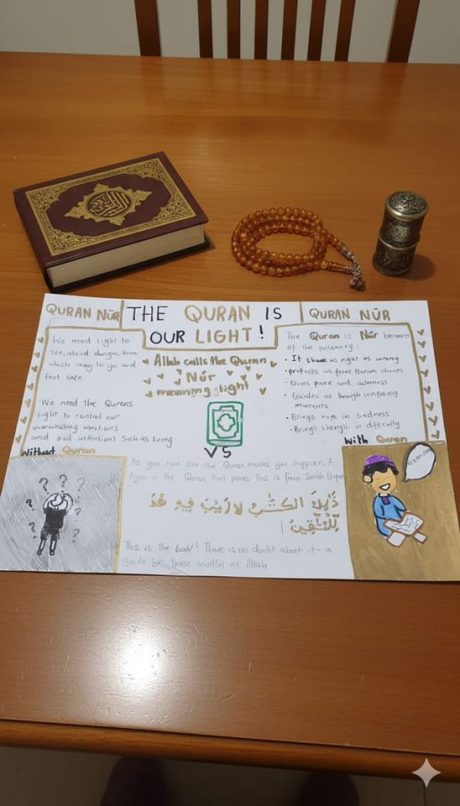 QURAN NŪR
THE QURAN IS
OUR LIGHT!
QURAN NŪR
We need light to
see, avoid danger, know
which way to go and
feel safe
We need the Qurans
light to control our
overwhelming emotions
and bad intentions such as lying
Without Quran
Allah calls the Quran
Nūr
meaning light
VS
The Quran is Nūr because
of the following:
• It shows us right vs wrong
• protects us from harmful choices
• Gives peace and calmness
• Guides us through tempting
moments
• Brings hope in Sadness
• Brings strength in difficulty
With Quran
As you can see the Quran makes you happier. A
Ayah in the Quran that proves this is from Surah
ذَٰلِكَ الْكِتَٰبُ لَا رَيْبَ فِيهِ هُدًى
لِّلْمُتَّقِينَ
This is the book! There is no doubt about it - a
guide for those mindful of Allah